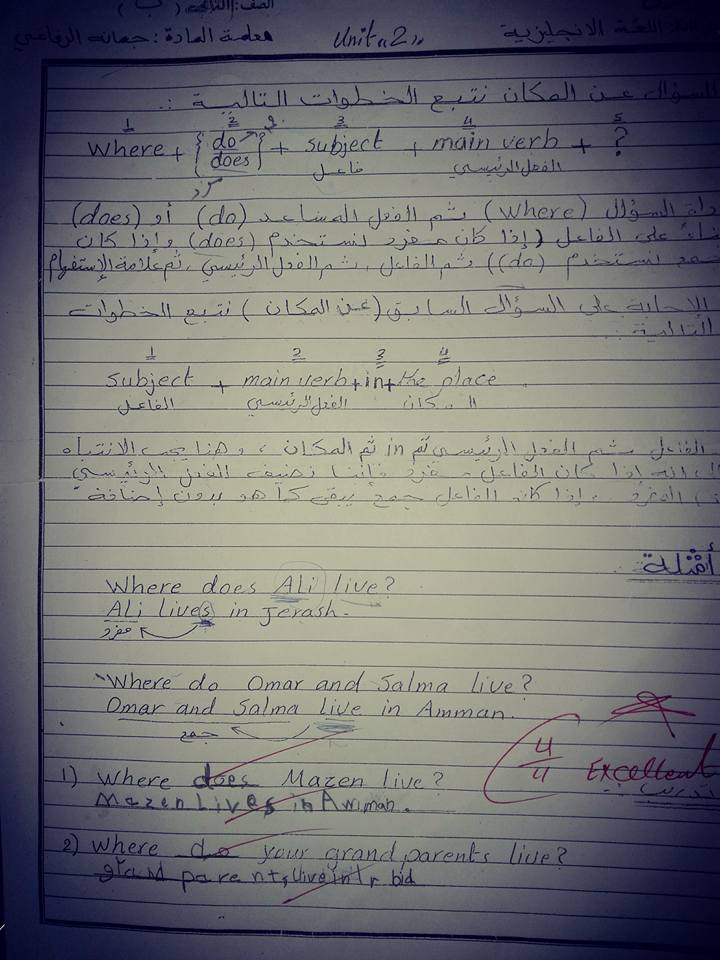 الصف: الثالث (ب)
اللغة الانجليزية Unit "2" معلمة المادة: جمانه الرفاعي
السؤال عن المكان نتبع الخطوات التالية :.
1 2 3 4 5
Where + { do does } + subject + main verb + ?
فاعل الفعل الرئيسي
مفرد
السؤال (where) ثم الفعل المساعد (do) أو (does)
على الفاعل (إذا كان مفرد نستخدم (does) وإذا كان
جمع نستخدم (do)) ثم الفاعل، ثم الفعل الرئيسي، ثم علامة الإستفهام
الاجابة على السؤال السابق (عن المكان) نتبع الخطوات
التالية :.
1 2 3 4
subject + main verb + in + the place.
الفاعل الفعل الرئيسي المكان
الفاعل ثم الفعل الرئيسي ثم in ثم المكان، وهنا يجب الانتباه
انه إذا كان الفاعل مفرد فإننا نضيف الفعل الرئيسي
المفرد. وإذا كان الفاعل جمع يبقى كما هو بدون إضافة
أمثلة
Where does Ali live?
Ali lives in Jerash.
مفرد
Where do Omar and Salma live?
Omar and Salma live in Amman.
جمع
4/4 Excellent
تدريب
1) Where does Mazen live?
Mazen Lives in Amman.
2) Where do your grandparents live?
grand parents live in Irbid